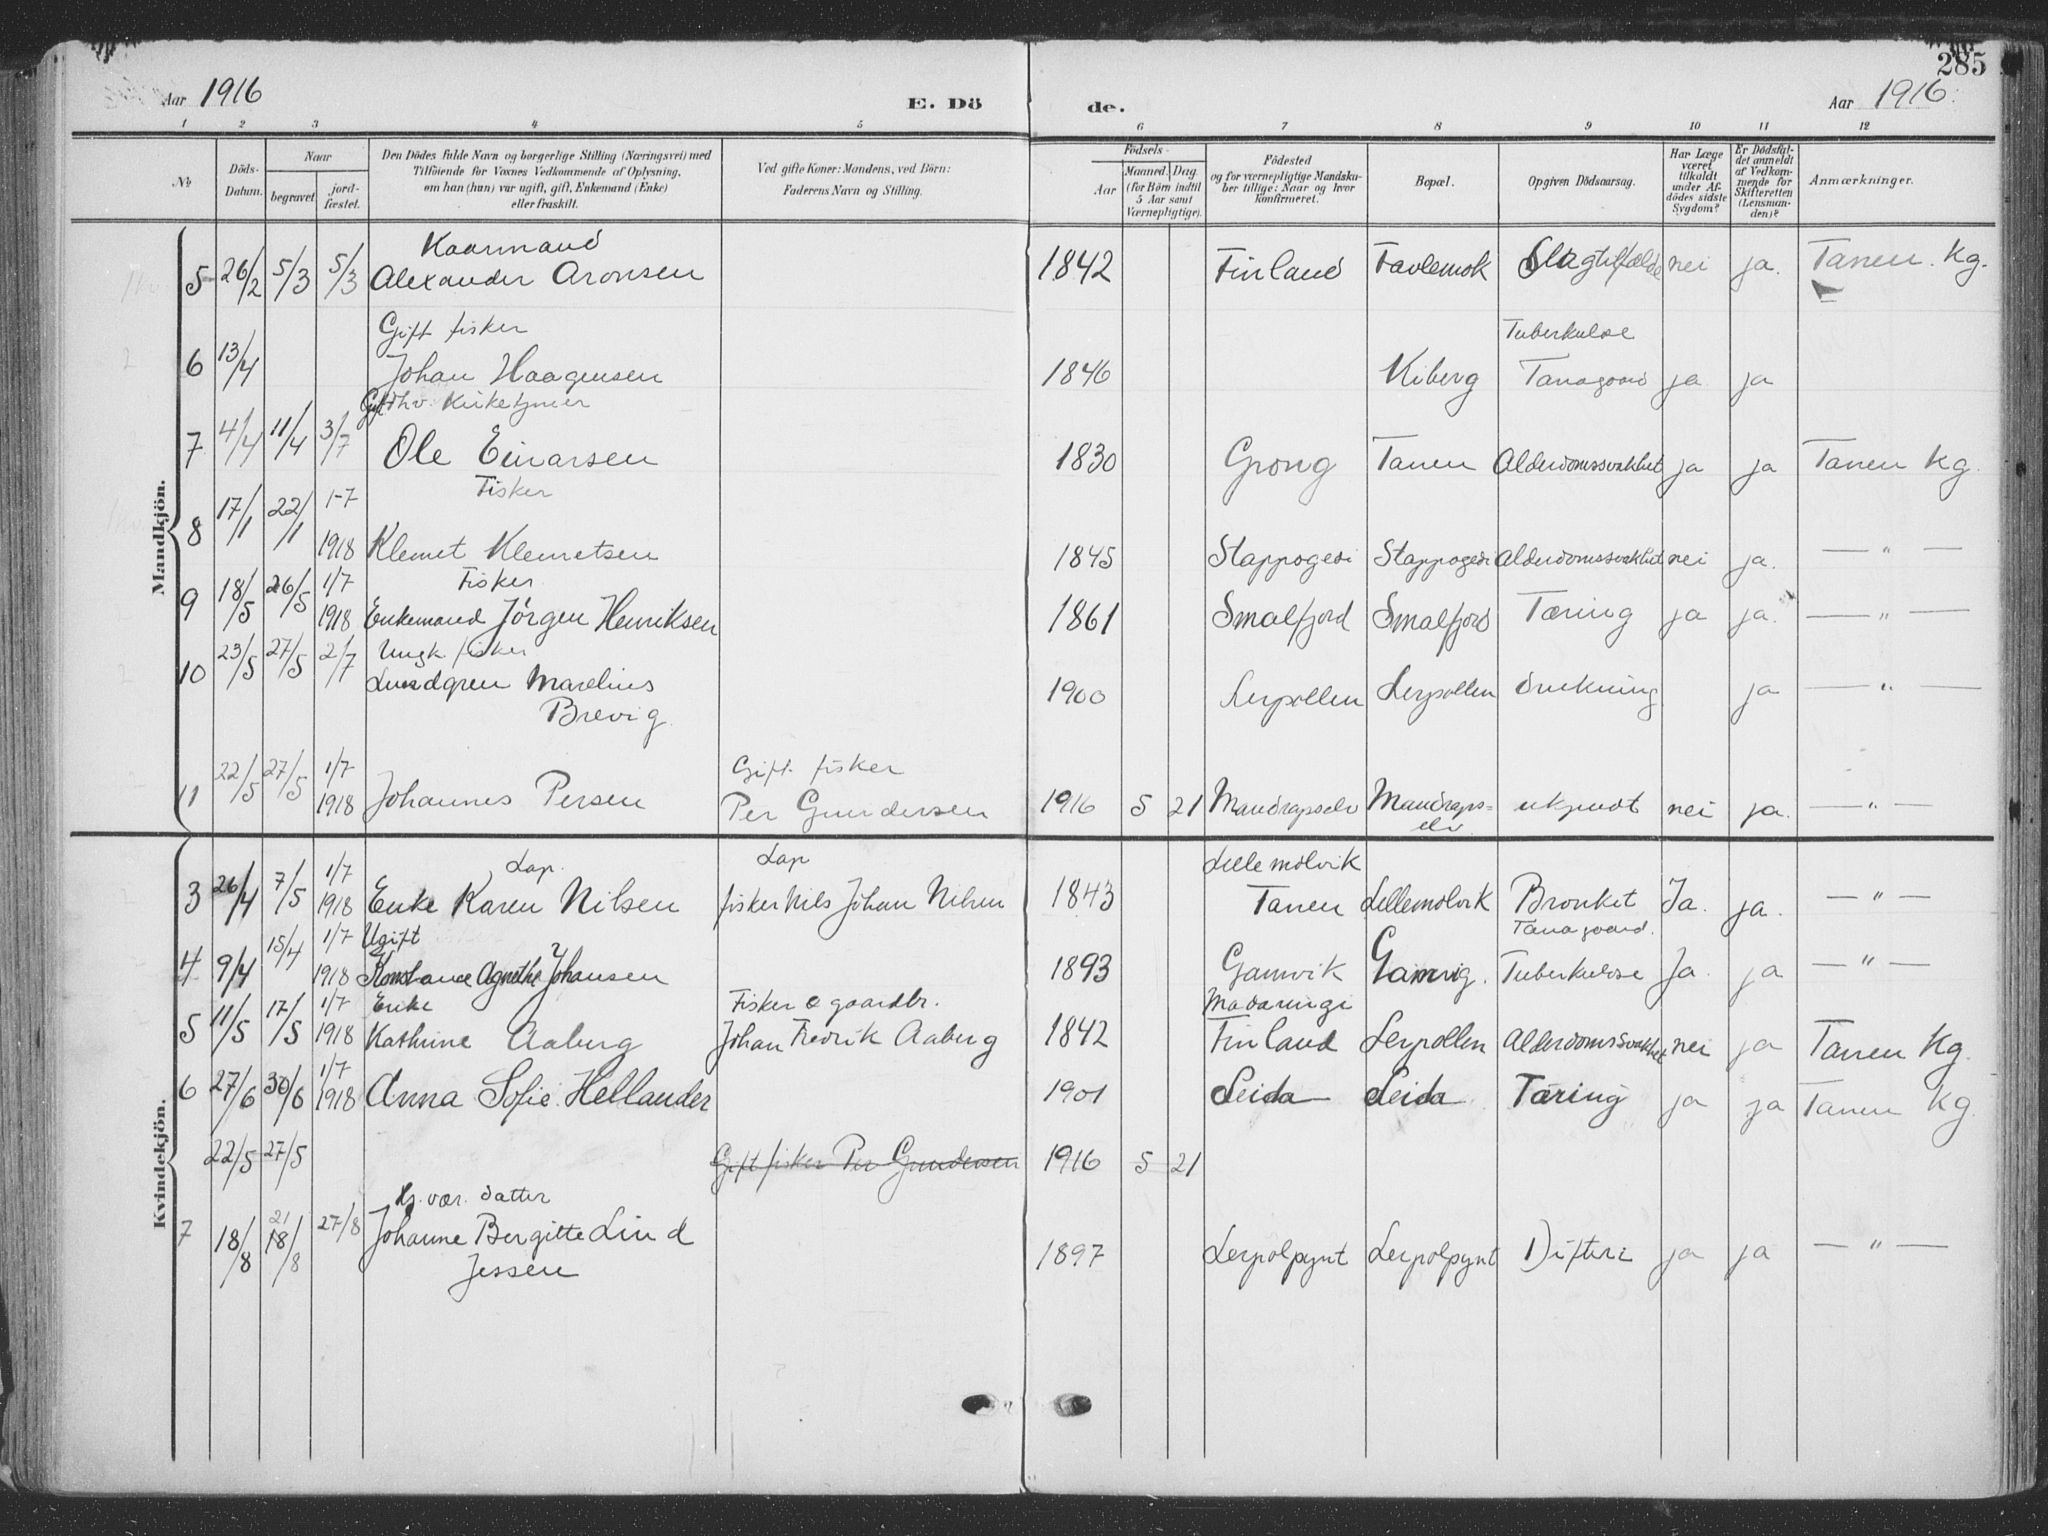 285
Aar 1916 E. Dö
de. Aar 1916.
1 2 3 4 5
6 7 8 9 10 11 12
No. Döds-Datum. Naar begravet. jord-fæstet. Den Dödes fulde Navn og borgerlige Stilling (Næringsvei) med Tilföiende for Voxnes Vedkommende af Oplysning, om han (hun) var ugift, gift, Enkemand (Enke) eller fraskilt. Ved gifte Koner: Mandens, ved Börn: Faderens Navn og Stilling.
Födsels- Aar Maaned. Dag. (for Börn indtil 5 Aar samt Værnepligtige). Födested og for værnepligtige Mandskaber tillige: Naar og hvor konfirmeret. Bopæl. Opgiven Dödsaarsag. Har Læge været tilkaldt under Afdödes sidste Sygdom? Er Dödsfaldet anmeldt af Vedkommende for Skifteretten (Lensmanden)? Anmærkninger.
Mandkjön.
Kaarmand
5 26/2 5/3 5/3 Alexander Aronsen 1842 Finland Favlemok nei ja. Tanen Kg.
Gift fisker Tuberkulose
6 13/4 Johan Haagensen 1846 Kiberg Tanagaard ja ja
Gift fhv. Kirketjener
7 4/4 11/4 3/7 Ole Einarsen 1830 Grong Tanen Alderdomssvakhet ja ja Tanen Kg.
Fisker
8 17/1 22/1 1-7 1918 Klemet Klemetsen 1845 Stappogedi Stappogedi Alderdomssvakhet nei ja. — " —
Fisker
9 18/5 26/5 1/7 1918 Enkemand Jörgen Henriksen 1861 Smalfjord Smalfjord Tæring ja ja. — " —
Ungk. fisker
10 23/5 27/5 2/7 Lundgren Marelius 1900 Lerpollen Lerpollen drukning ja — " —
Brevig
Gift fisker
11 22/5 27/5 1/7 1918 Johannes Persen Per Gundersen 1916 5 21 Mandrapselv Mandraps= elv ukjendt nei ja. — " —
Kvindekjön.
Lap. Lap Lille molvik
3 26/4 7/5 1/7 1918 Enke Karen Nilsen fisker Nils Johan Nilsen 1843 Tanen Lillemolvik Bronkit Ja. ja. — " —
Ugift Tanagaard.
4 9/4 15/4 1/7 1918 Konstance Agnethe Johansen 1893 Gamvik Gamvig. Tuberkulose Ja. ja — " —
Enke Fisker & gaardbr.
5 11/5 17/5 1/7 1918 Kathrine Aaberg Johan Fredrik Aaberg 1842 Finland Lerpollen Alderdomssvakhet nei ja Tanen Kg.
6 27/6 30/6 1/7 1918 Anna Sofie Hellander 1901 Leida Leida Tæring ja ja Tanen Kg.
22/5 27/5 Gift fisker Per Gundersen 1916 5 21
datter
7 18/8 21 18/8 27/8 Johanne Bergitte Lind 1897 Lerpolpynt Lerpolpynt Difteri ja ja — " —
Jessen